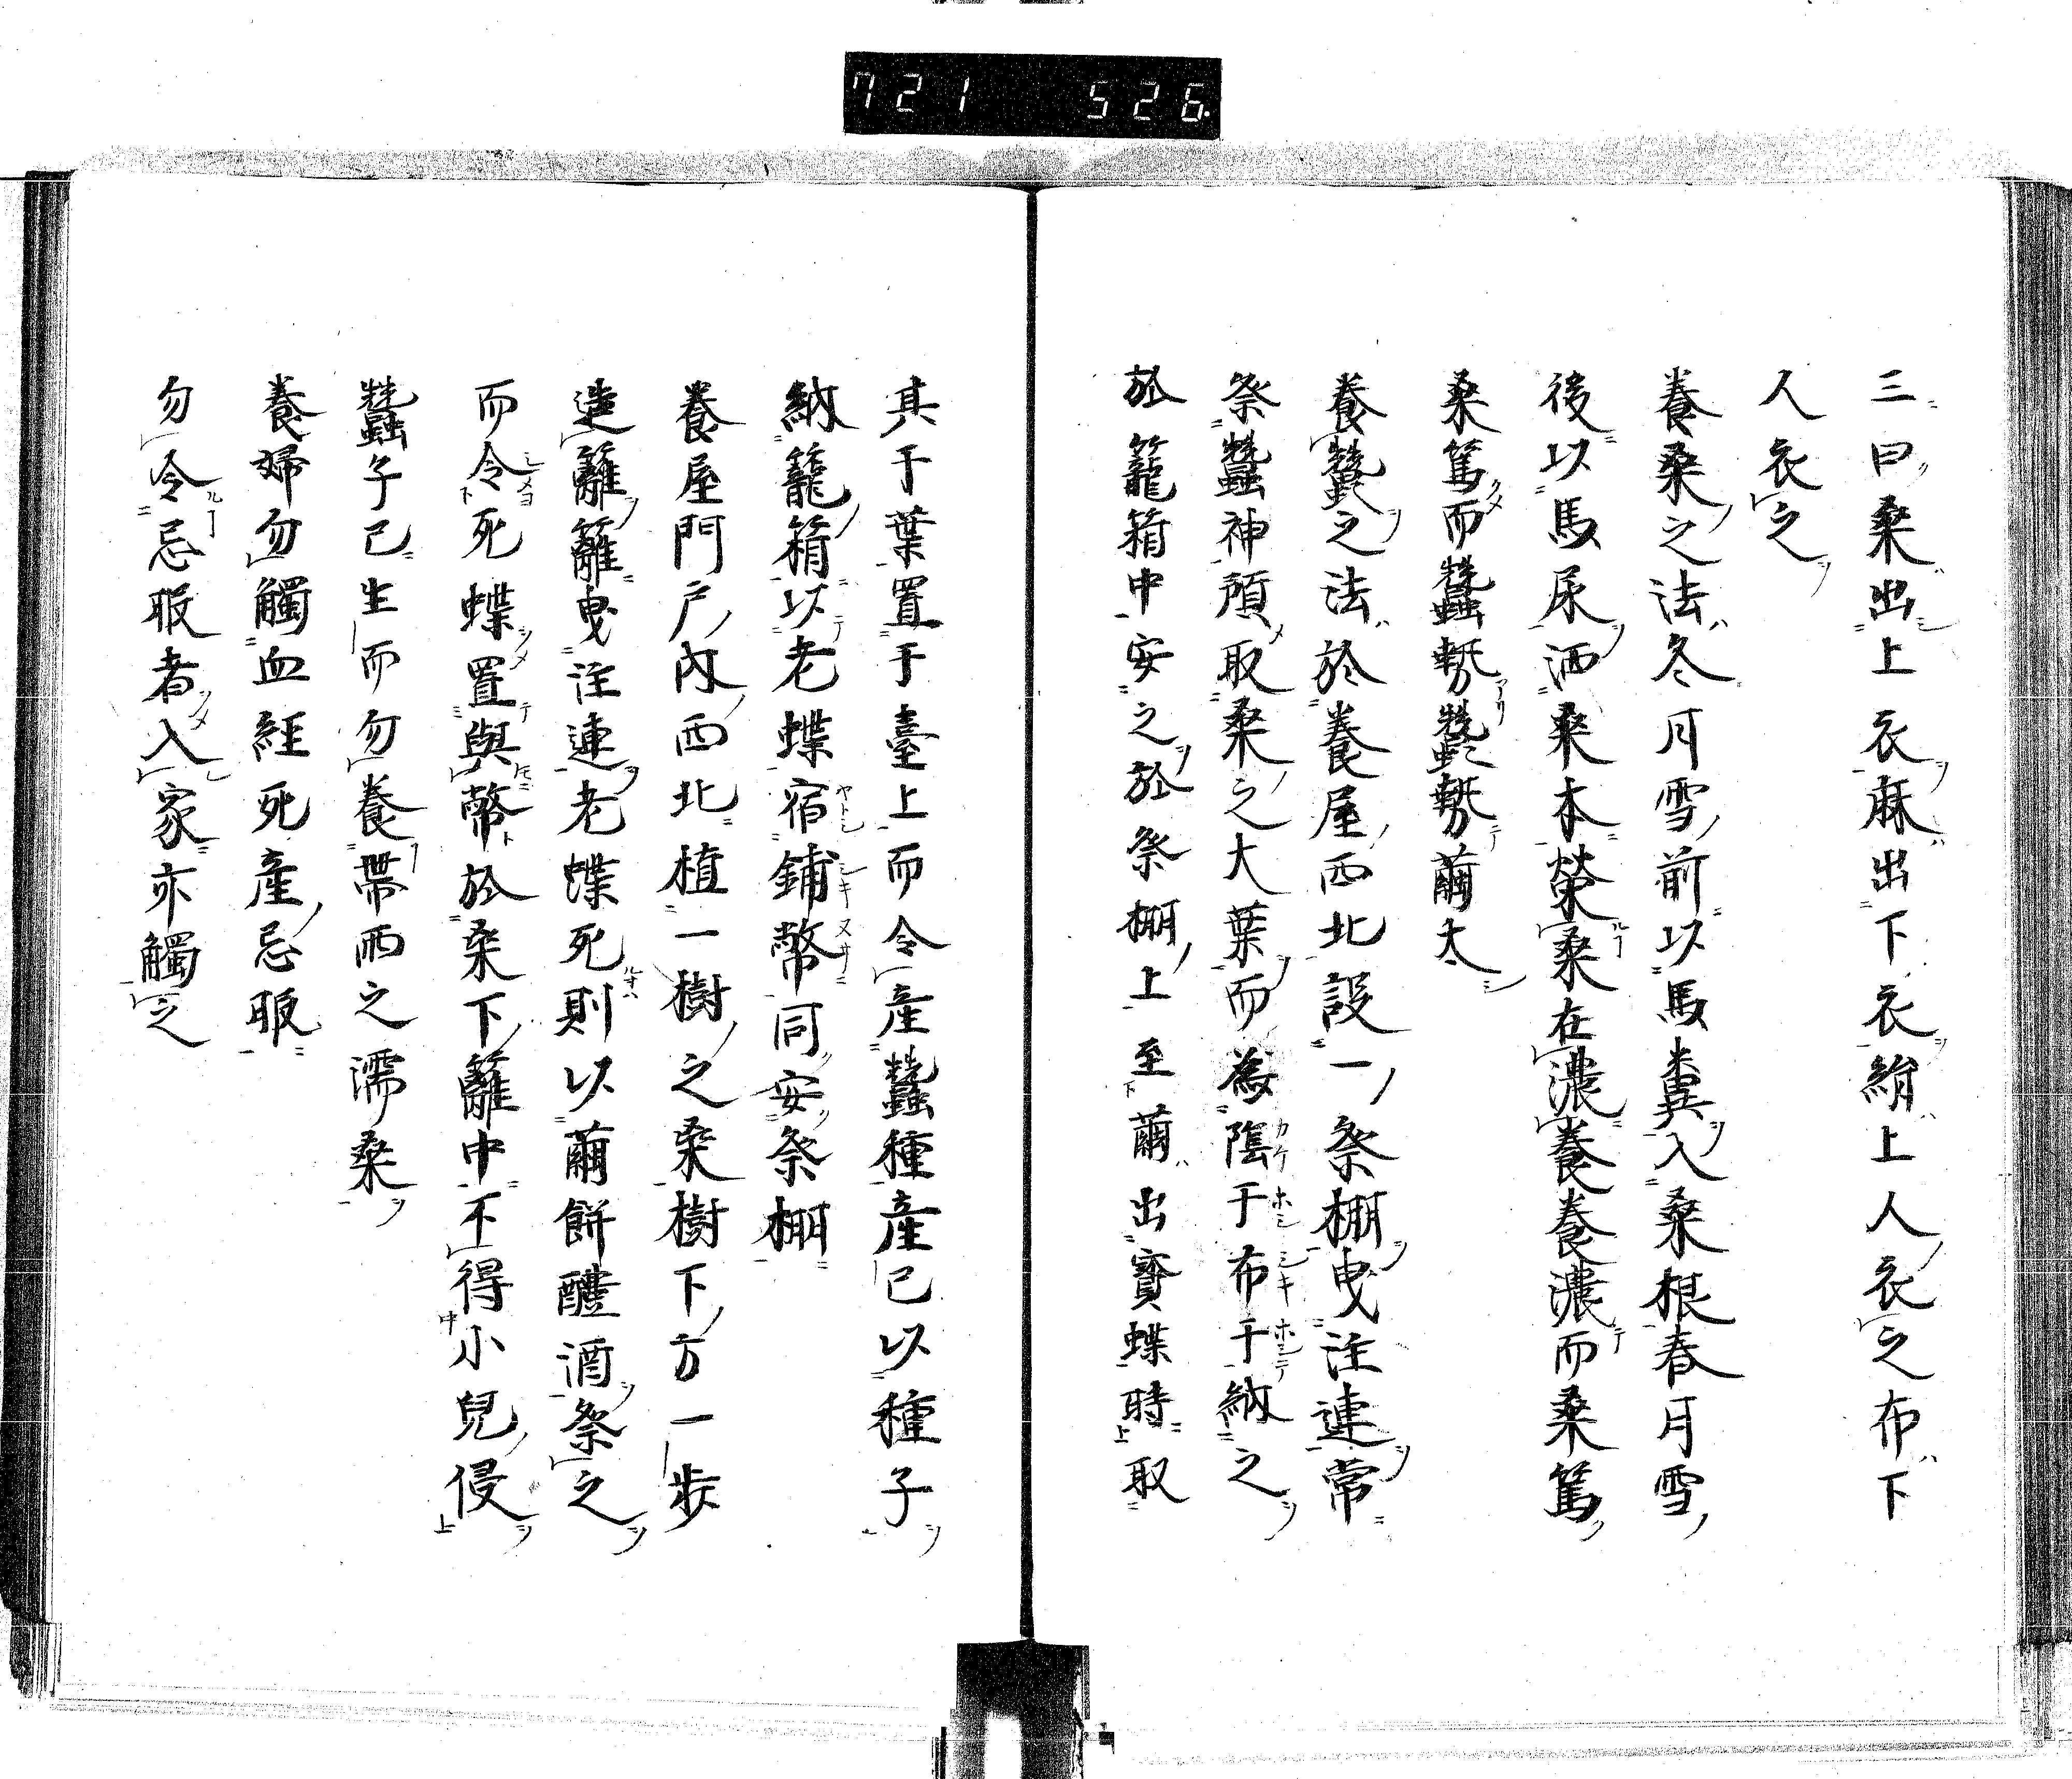 721 526
三曰桑出上衣麻出下衣絹上人衣之布下
人衣之
養桑之法冬月雪前以馬糞入桑根春月雪
後以馬尿洒桑本榮桑在濃養養濃而桑篤
桑篤而蠶勢蠶勢繭大
養蠶之法於養屋西北設一祭棚曳注連常
祭蠶神預取桑之大葉而為陰干布干納之
於籠箱中安之於祭棚上至繭出寳蝶時取
其干葉置于臺上而令產蠶種產已以種子
納籠箱以老蝶宿鋪幣同安祭棚
養屋門戶內西北植一樹之桑樹下方一歩
造籬籬曳注連老蝶死則以繭餅醴酒祭之
而令死蝶置與幣於桑下籬中不得小兒侵
蠶子已生而勿養帶雨之濡桑
養婦勿觸血經死產忌服
勿令忌服者入家亦觸之